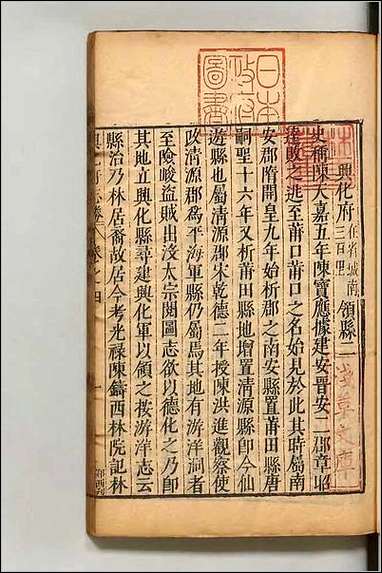 日本
政府
圖書
淺草文庫
興化府 在省城南三百里 領縣二
史稱陳天嘉五年陳寶應據建安晉安二郡章昭
達敗之逃至莆口莆口之名始見於此其時屬南
安郡隋開皇九年始析郡之南安縣置莆田縣唐
嗣聖十六年又析莆田縣地增置清源縣即今仙
遊縣也屬清源郡宋乾德二年授陳洪進觀察使
改清源郡為平海軍縣仍屬焉其地有游洋洞者
至險峻盜賊出沒太宗閱圖志欲以德化之乃即
其地立興化縣尋建興化軍以領之按游洋志云
縣治乃林居裔故居今考光祿陳鑄西林院記林